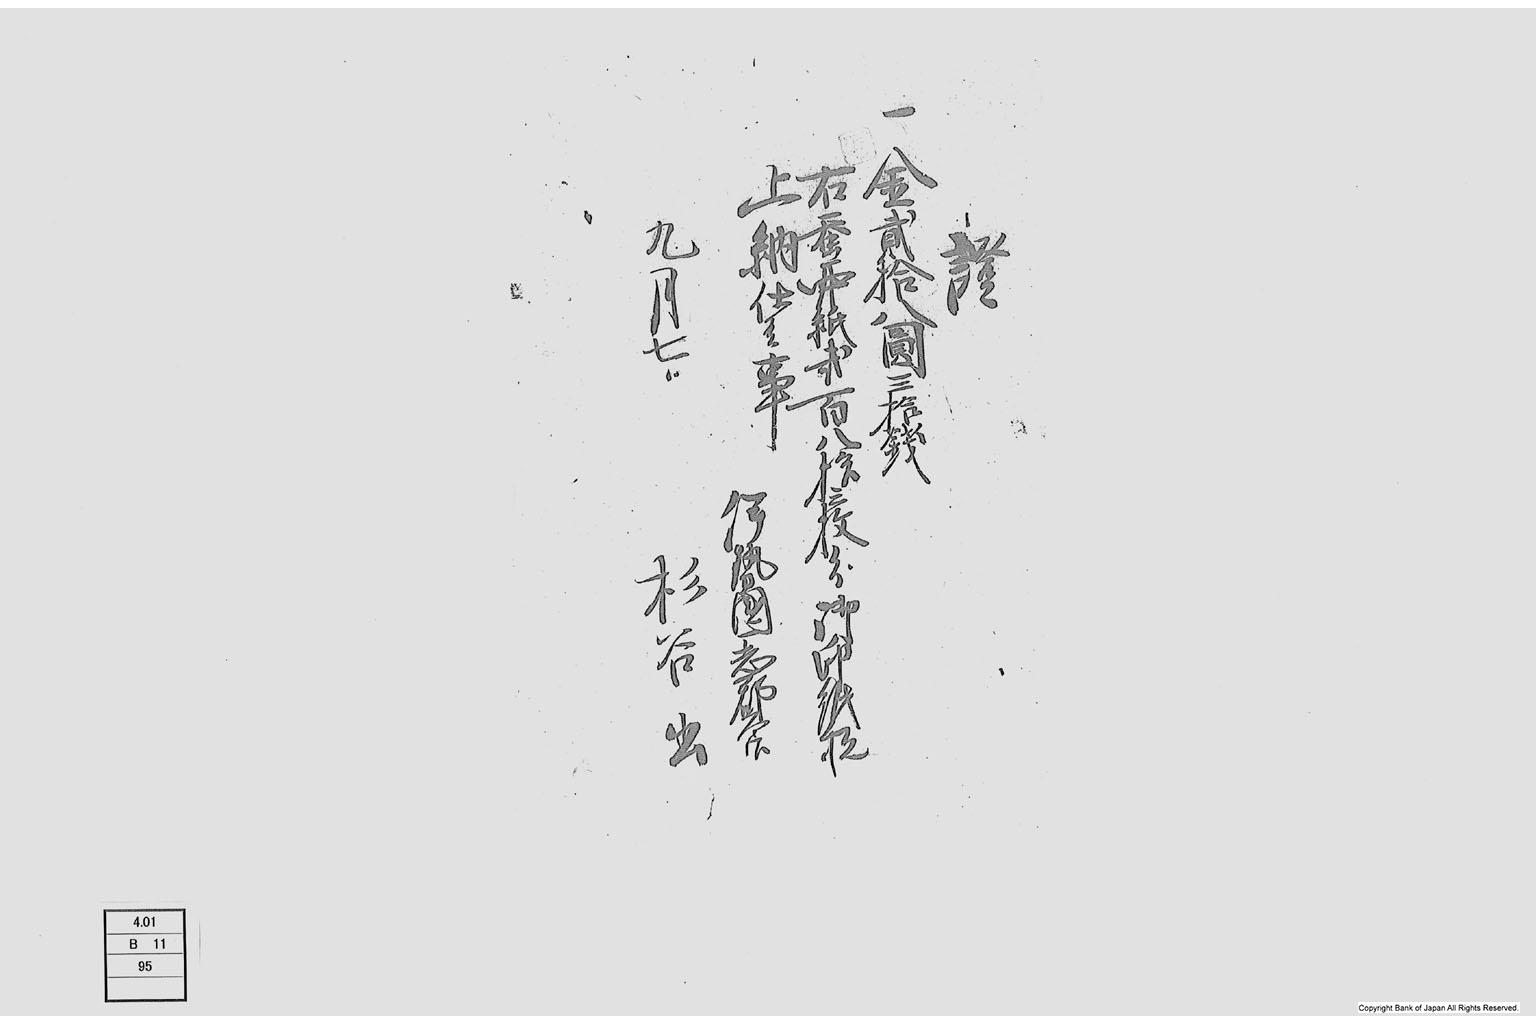 證
一金貳拾八圓三拾錢
右蚕卵紙弐百八拾三枚分御印紙税
上納仕候事
九月七日
伊勢國志郡
杉谷出
4.01
B 11
95
Copyright Bank of Japan All Rights Reserved.